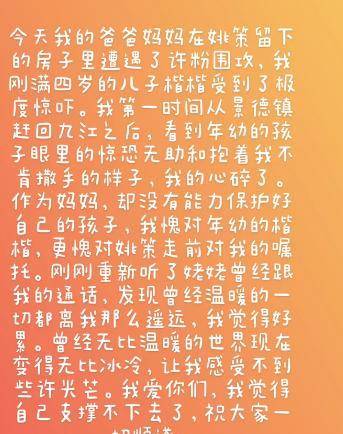 今天我的爸爸妈妈在姚策留下
的房子里遭遇了许粉围攻，我
刚满四岁的儿子楷楷受到了极
度惊吓。我第一时间从景德镇
赶回九江之后，看到年幼的孩
子眼里的惊恐无助和抱着我不
肯撒手的样子，我的心碎了。
作为妈妈，却没有能力保护好
自己的孩子，我愧对年幼的楷
楷，更愧对姚策走前对我的嘱
托。刚刚重新听了姥姥曾经跟
我的通话，发现曾经温暖的一
切都离我那么遥远，我觉得好
累。曾经无比温暖的世界现在
变得无比冰冷，让我感受不到
些许光芒。我爱你们，我觉得
自己支撑不下去了，祝大家一
切顺遂